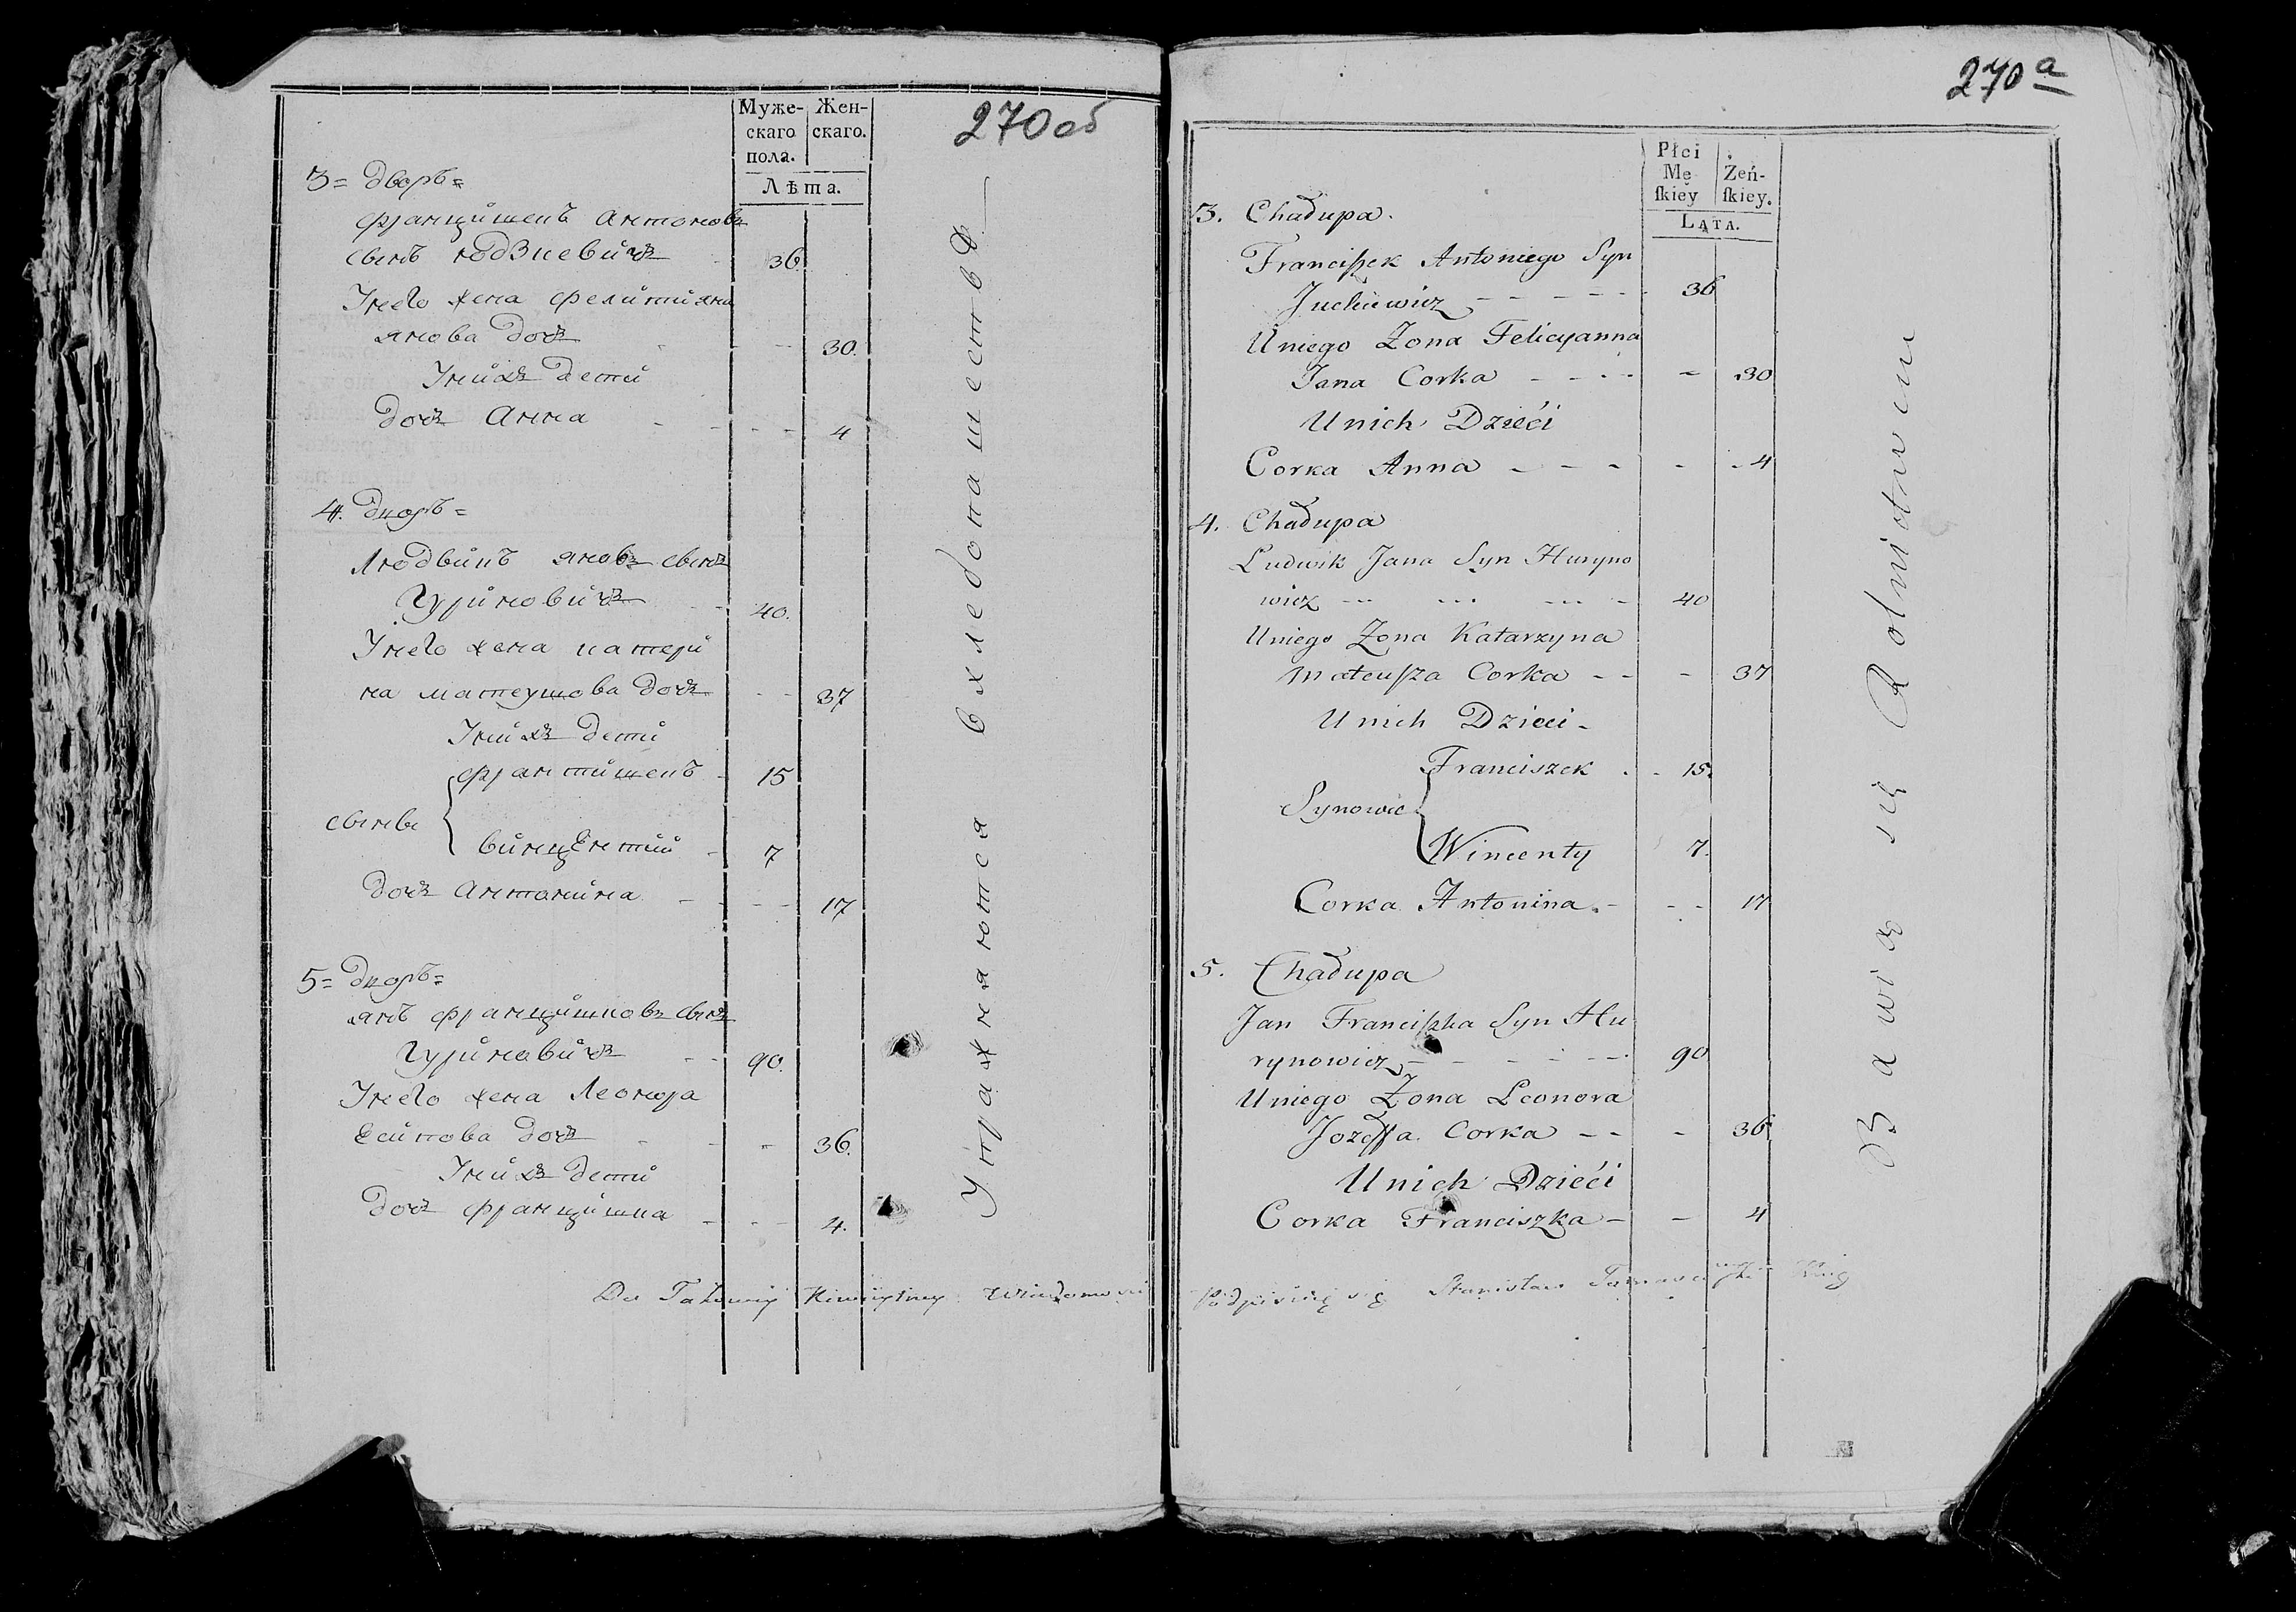 270 об
Муже-
скаго
пола.
Жен-
скаго.
Лѣта.
3= дворъ=
францишекъ антоновъ
сынъ юдзкевичъ - 36
Унего жена фелитияна
янова дочь - - 30.
Унихъ дети
дочь анна - - - - 4
4. дворъ=
Людвикъ яновъ сынъ
Гуриновичъ - - 40.
Унего жена катери
на матеушова дочь - - 37
Унихъ дети
францишекъ - 15
сыны {
винцентий - 7
дочь антонина - - - - 17
5= дворъ=
янъ францишковъ сынъ
гуриновичъ - - 90.
Унего жена леонора
есипова дочь - - - 36.
Унихъ дети
дочь францишка - - - 4.
Упражняются вхлебопашествѣ
Do Takowey Wiadomosci
270 a
Płci
Mę
skiey
Żeń-
skiey.
LATA.
3. Chadupa.
Franciszek Antoniego Syn
Juckiewicz - - - - - - 36
Uniego Zona Felicyanna
Jana Corka - - - - - 30
Unich Dzieći
Corka Anna - - - - - 4
4. Chadupa
Ludwik Jana Syn Huryno
wicz - - - - 40
Uniego Zona Katarzyna
Mateusza Corka - - - 37
Unich Dzieci -
Franciszek . - 15.
Synowie {
Wincenty 7.
Corka Antonina. - - - 17
5. Chadupa
Jan Franciszka Syn Hu
rynowicz - - - - - 90
Uniego Zona Leonora
Jozeffa Corka - - - 36
Unich Dzieći
Corka Franciszka - - 4
Bawią się Rolnictwem
Podpisuię się Stanisław